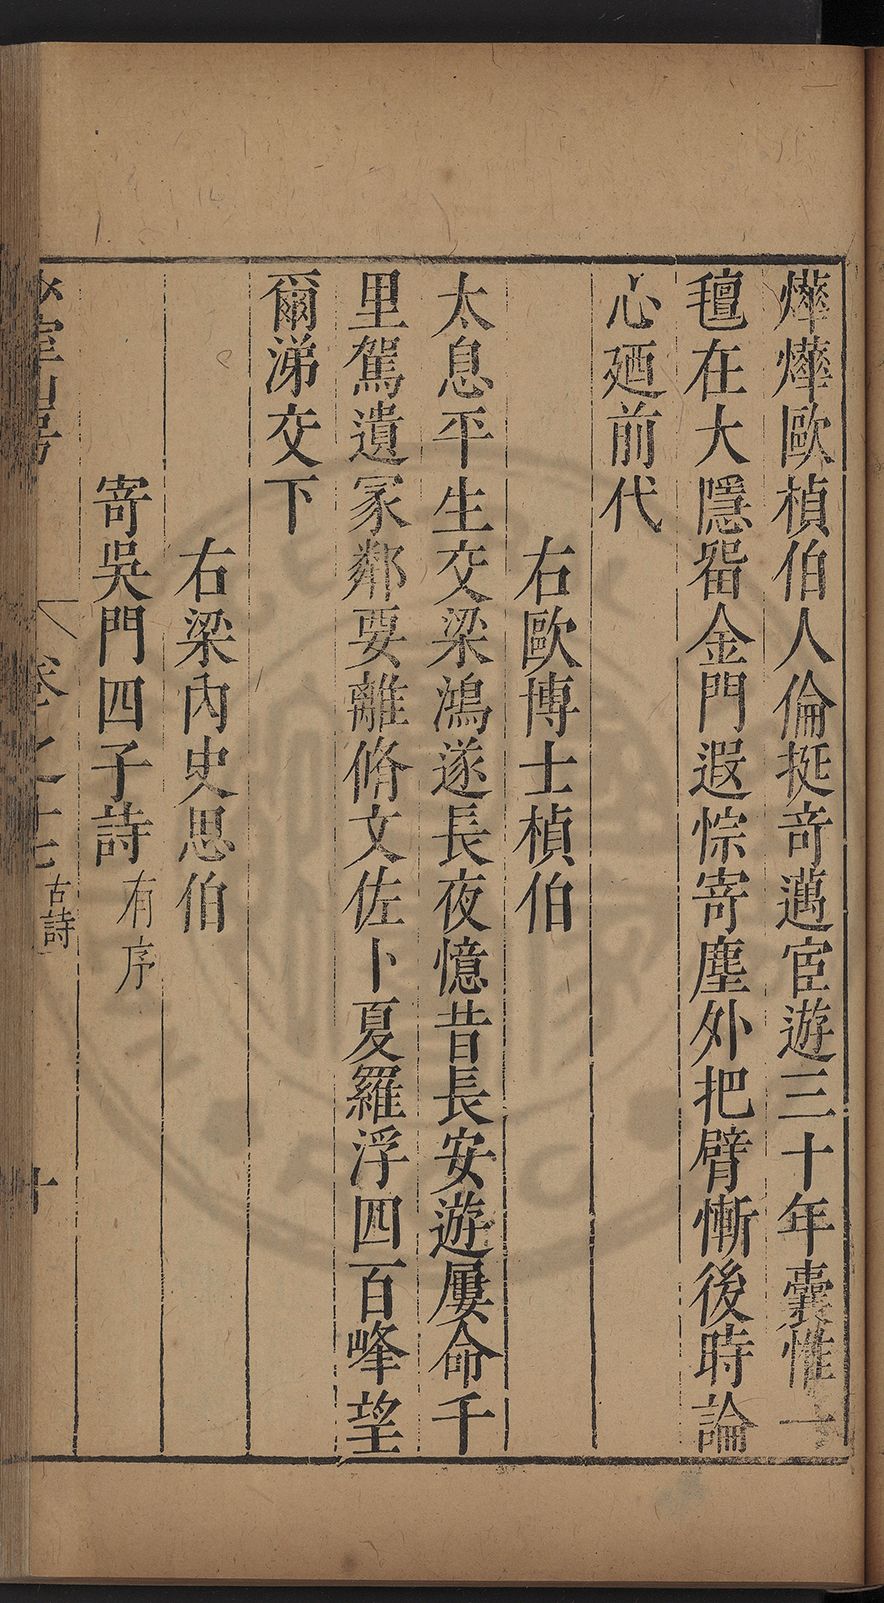 燁燁歐楨伯人倫挺奇邁宦遊三十年囊惟一
氊在大隱畱金門遐悰寄塵外把臂慚後時論
心廼前代
右歐博士楨伯
太息平生交梁鴻遂長夜憶昔長安遊屢命千
里駕遺冢鄰要離脩文佐卜夏羅浮四百峰望
爾涕交下
右梁內史思伯
寄吳門四子詩有序
少室山房
卷之十七
古詩
十